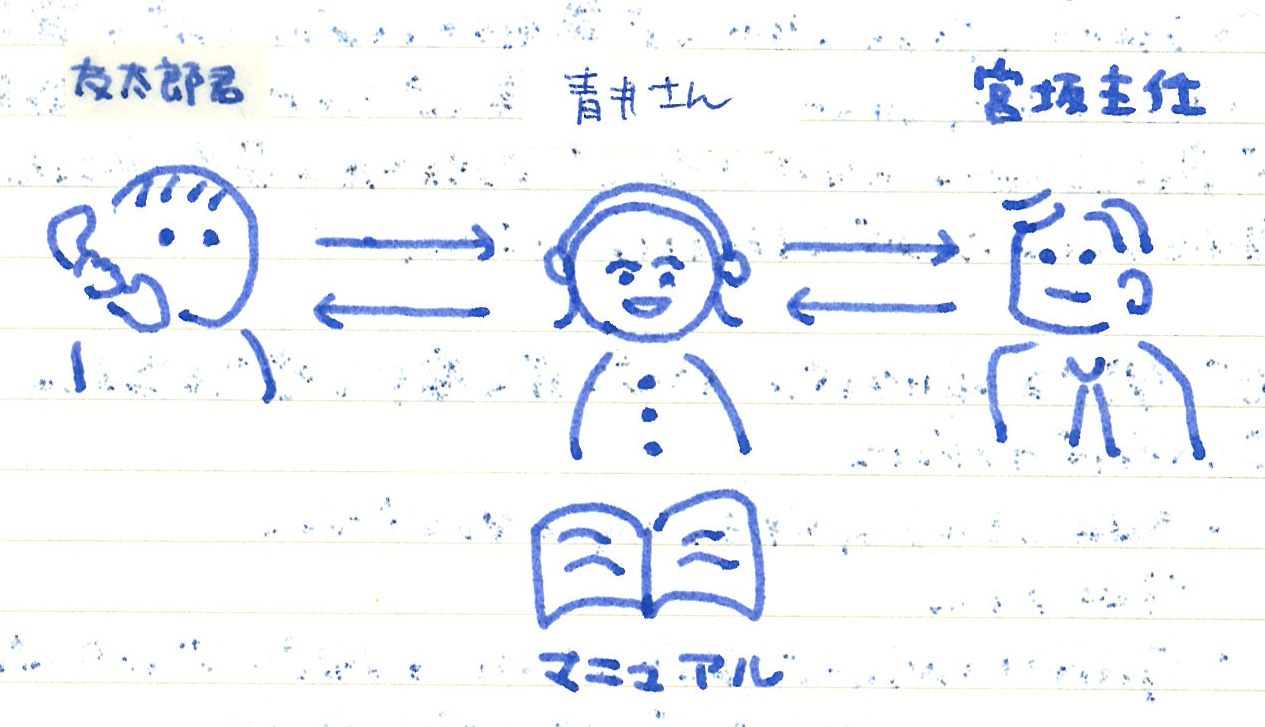 友太郎君
青井さん
宮坂主任
マニュアル